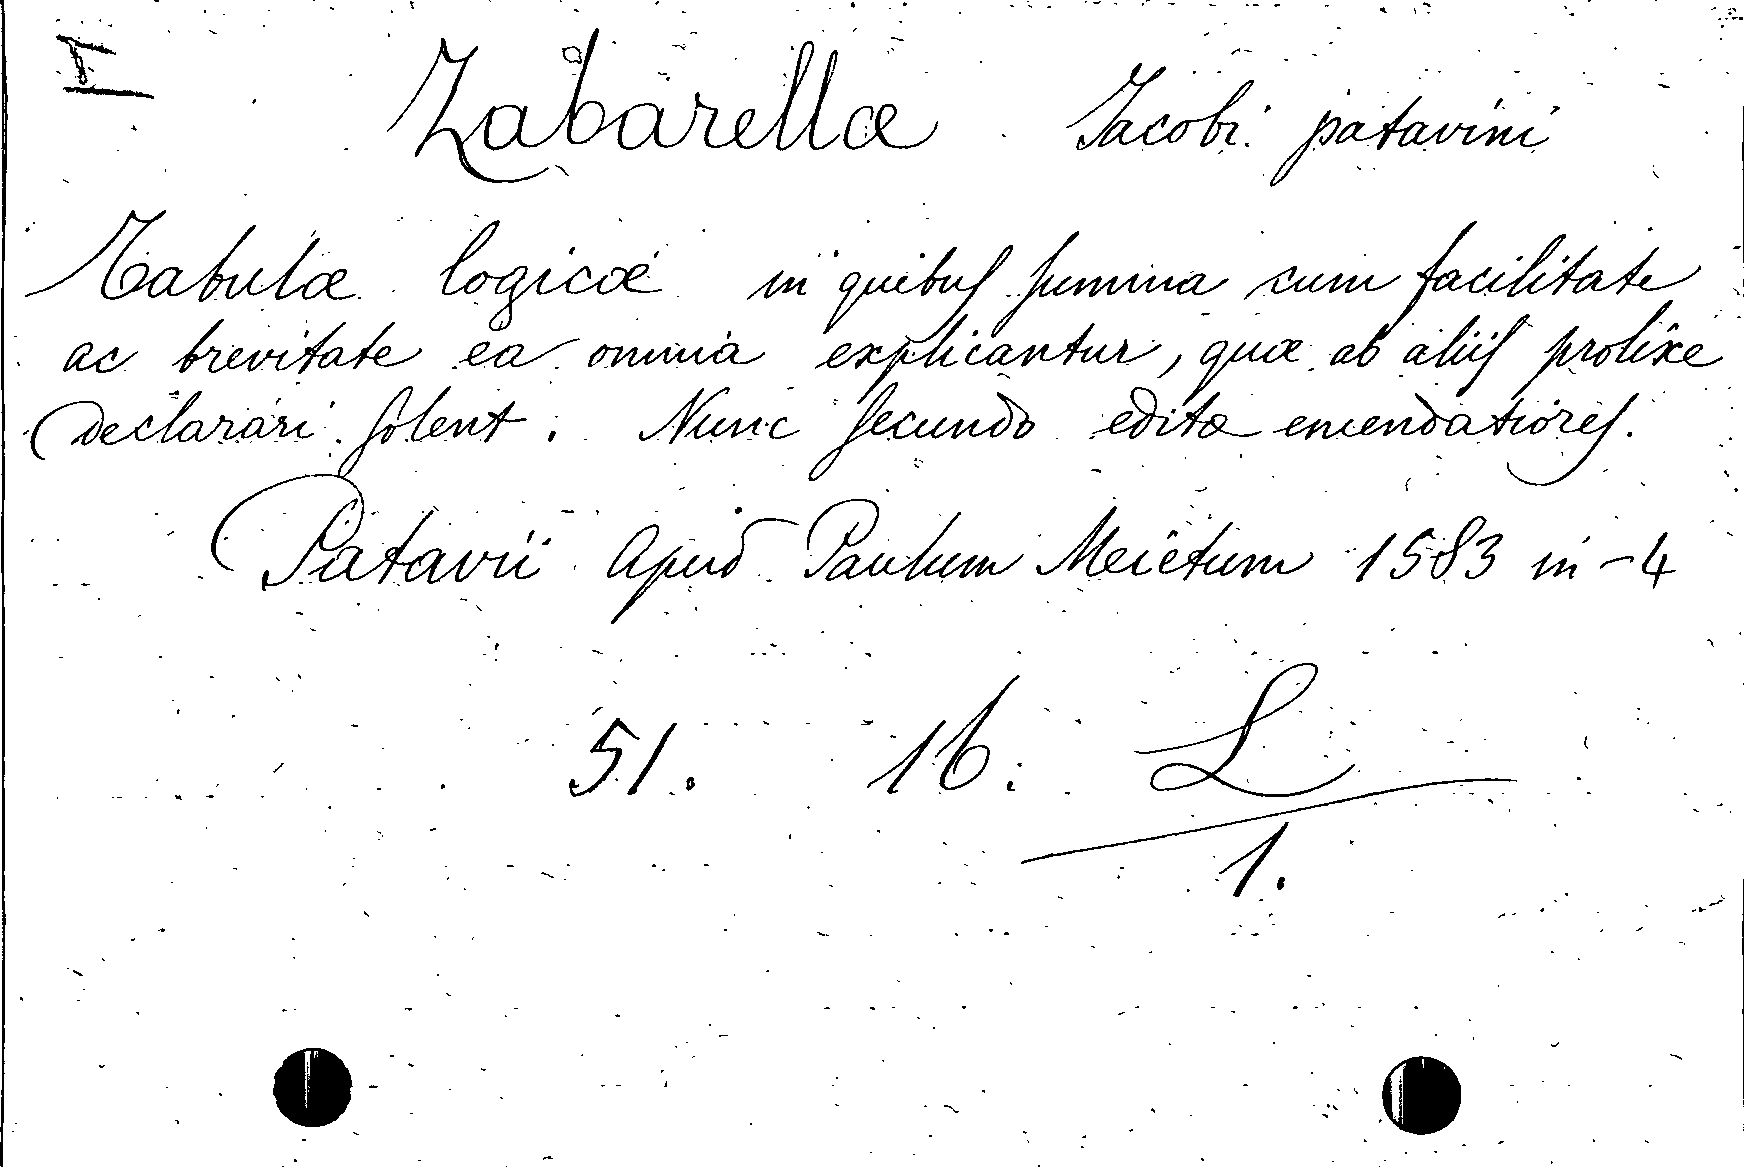 I
Zabarellæ Jacobi patavini
Tabulæ logicæ in quibus summa cum facilitate
ac brevitate ea omnia explicantur, quæ ab aliis prolixe
declarari solent. Nunc secundo editæ emendatiores.
Patavii Apud Paulum Meietum 1583 in-4
51. 16. L
1.